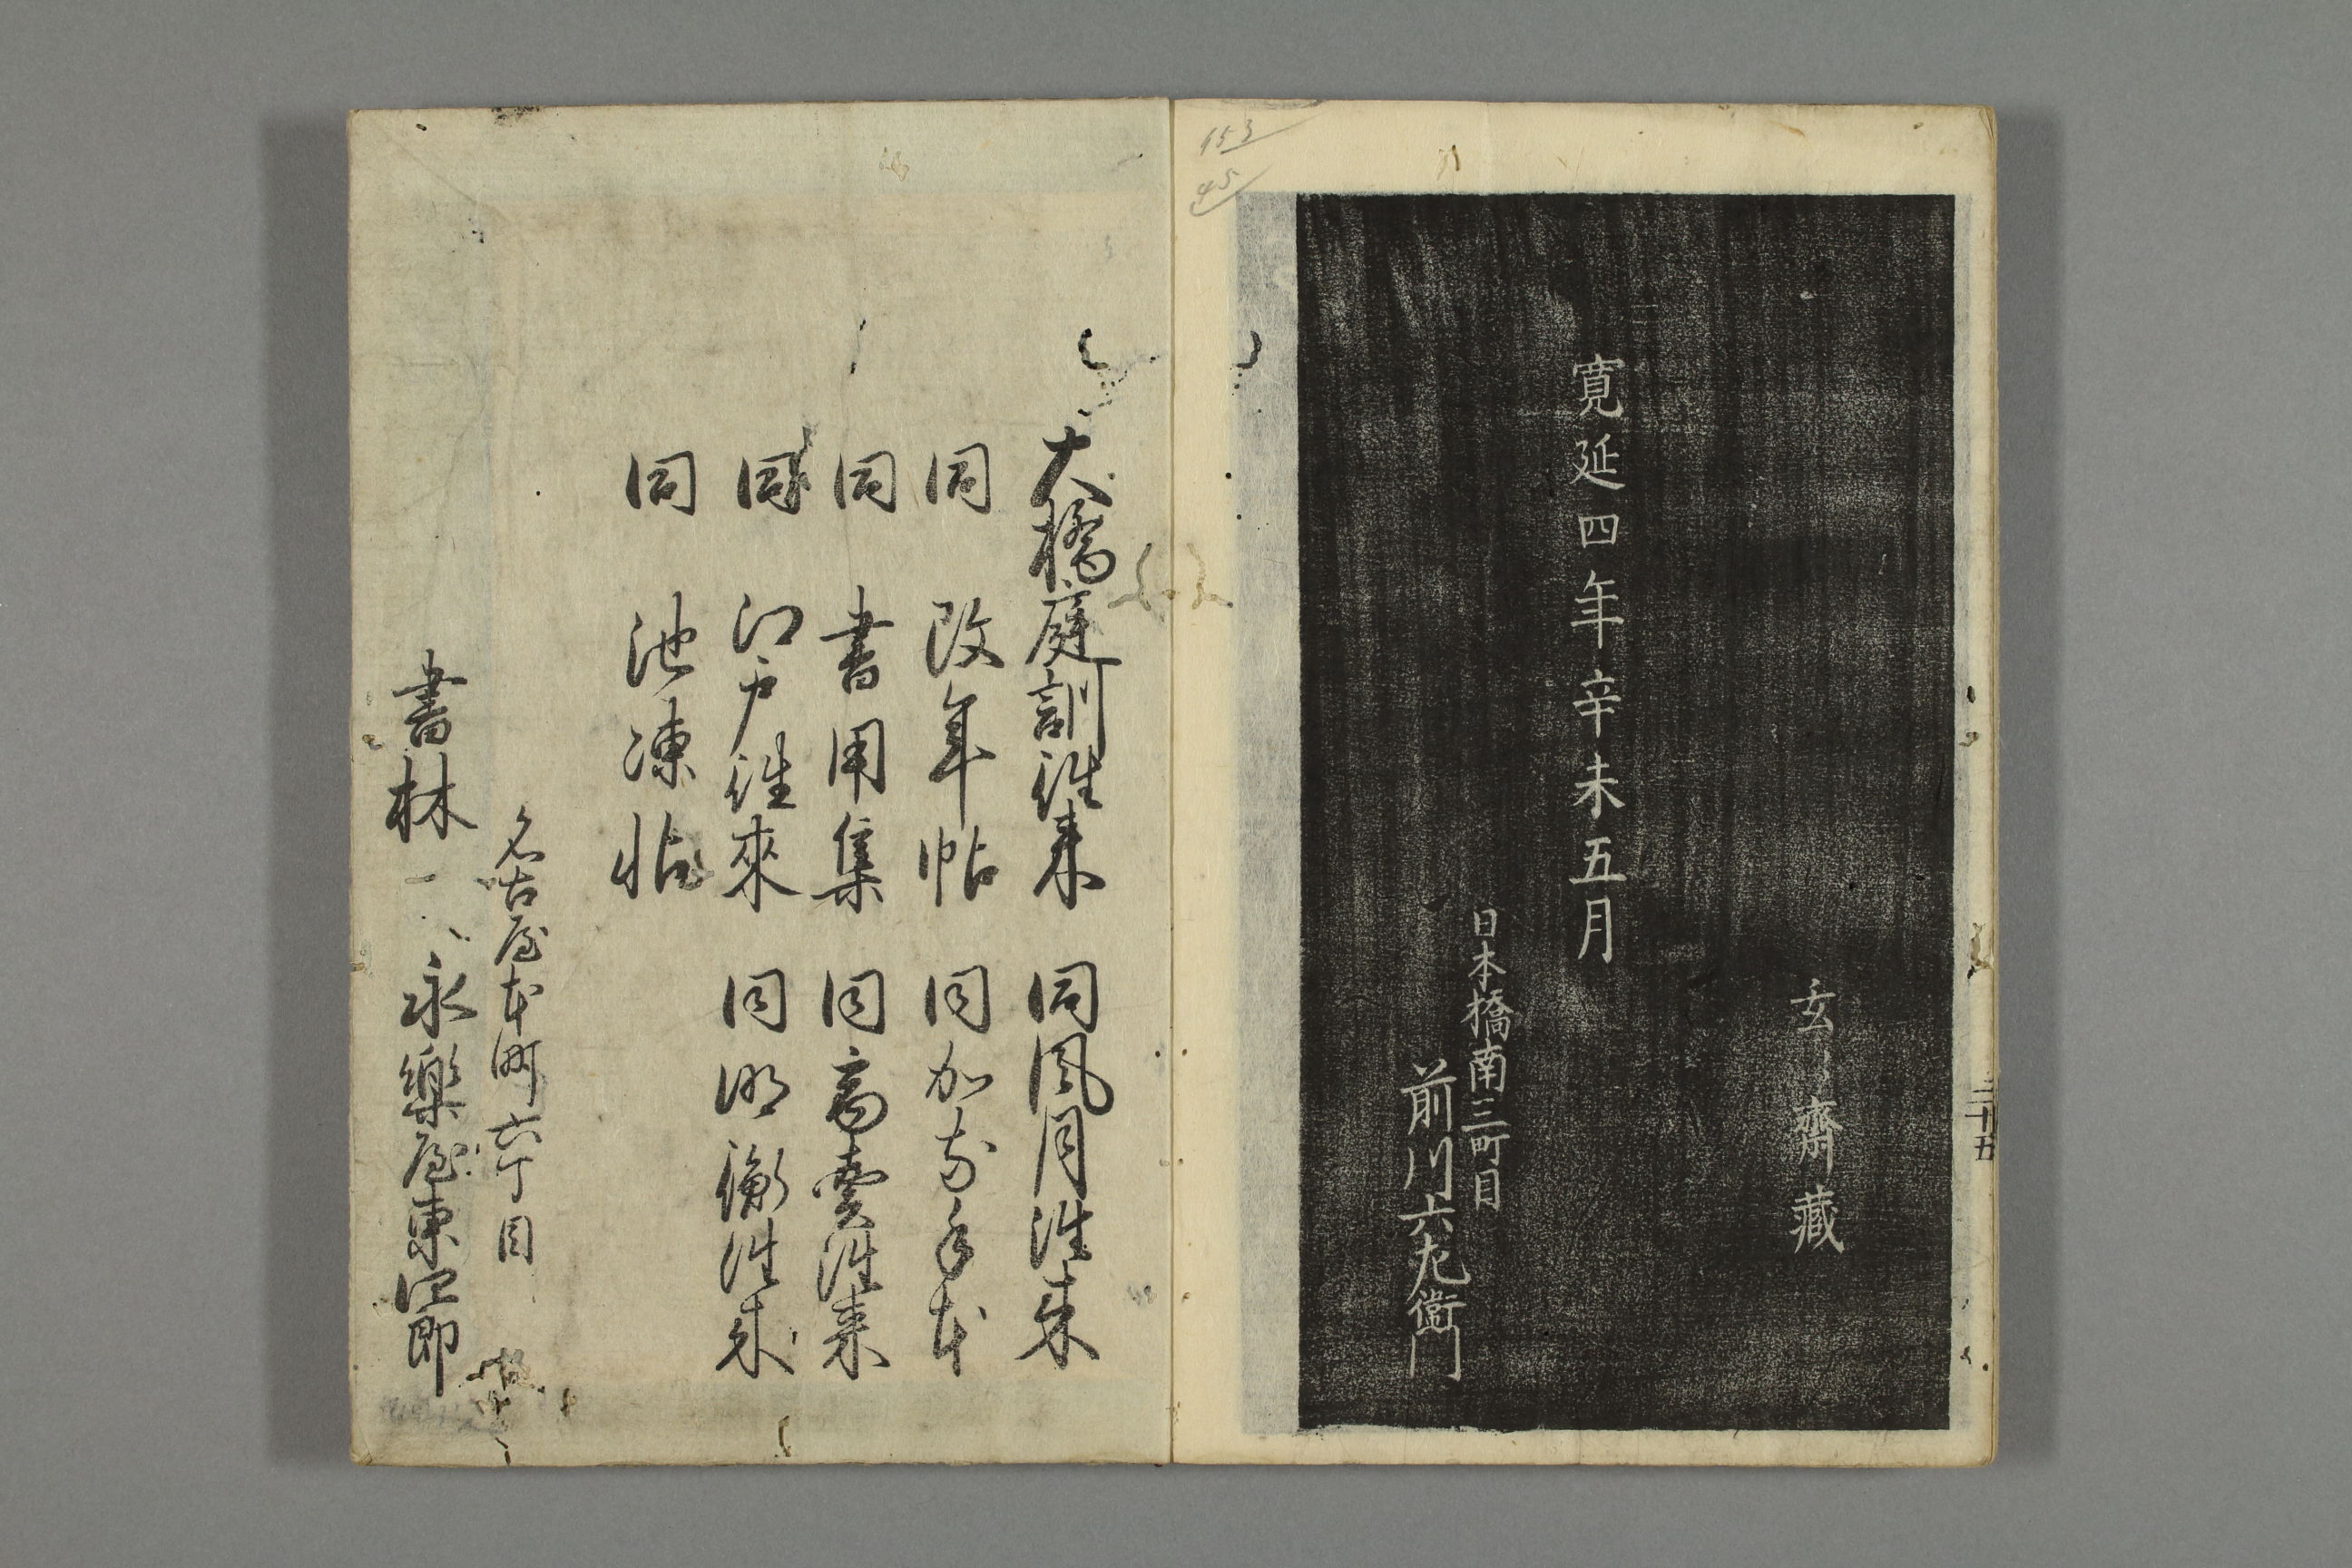 153
45
玄々齋藏
寛延四年辛未五月
日本橋南三町目
前川六左衛門
三十五
大橋庭訓徃来
同風月徃来
同 改年帖
同かな手本
同 書用集
同商賣徃来
同 江戸徃來
同明衡徃来
同 池凍帖
名古屋本町六丁目
書林 永樂屋東四郎